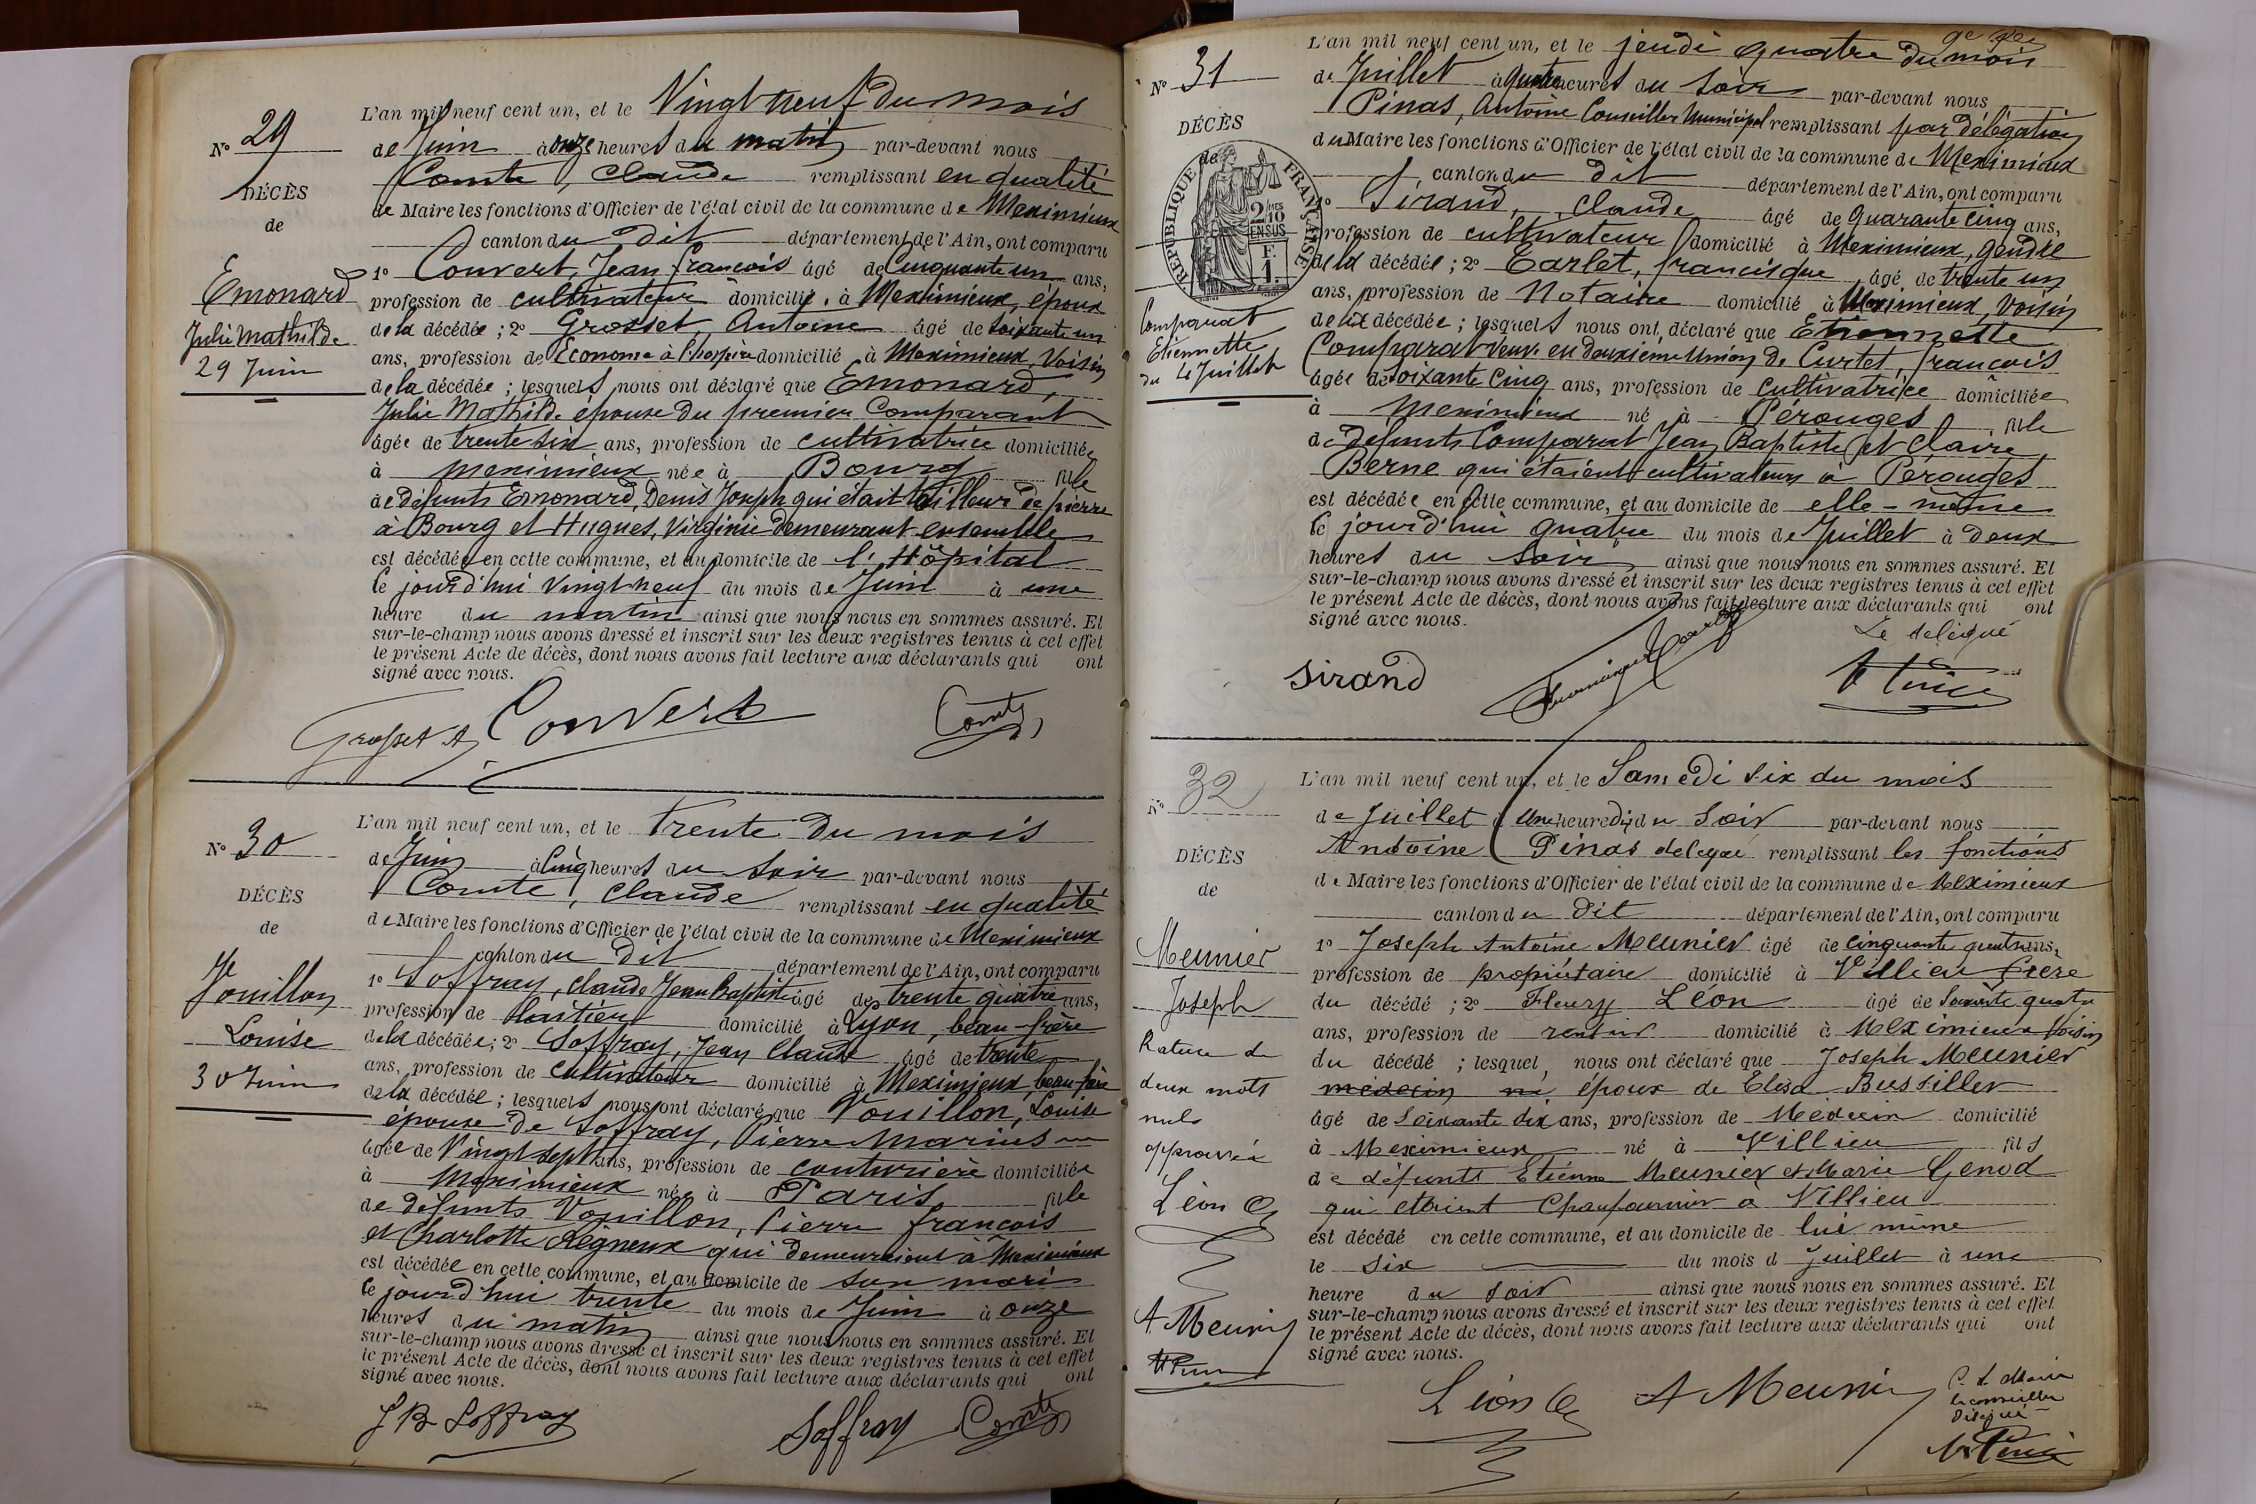 N° 29
DÉCÈS
de
Emonard
Julie Mathilde
29 Juin
L'an mil neuf cent un, et le Vingt neuf du mois
de Juin à onze heures du matin par-devant nous
Comte, Claude remplissant en qualité
de Maire les fonctions d'Officier de l'état civil de la commune de Meximieux
canton du dit département de l'Ain, ont comparu
1° Convert, Jean François âgé de Cinquante un ans,
profession de cultivateur domicilié à Meximieux, époux
de la décédée ; 2° Grosset, Antoine âgé de soixante un
ans, profession de Econome à l'hospice domicilié à Meximieux, Voisin
de la décédée ; lesquels nous ont déclaré que Emonard,
Julie Mathilde épouse du premier Comparant
âgée de trente six ans, profession de cultivatrice domiciliée
à Meximieux née à Bourg fille
de défunts Emonard, Denis Joseph qui était tailleur de pierre
à Bourg et Hugues, Virginie demeurant ensemble
est décédée en cette commune, et au domicile de l'Hôpital
le jourd'hui vingt neuf du mois de Juin à une
heure du matin ainsi que nous nous en sommes assuré. Et
sur-le-champ nous avons dressé et inscrit sur les deux registres tenus à cet effet
le présent Acte de décès, dont nous avons fait lecture aux déclarants qui ont
signé avec nous.
Grosset A Convert Comte
N° 30
DÉCÈS
de
Vouillon
Louise
30 Juin
L'an mil neuf cent un, et le trente du mois
de Juin à Cinq heures du soir par-devant nous
Comte, Claude remplissant en qualité
de Maire les fonctions d'Officier de l'état civil de la commune de Meximieux
canton du dit département de l'Ain, ont comparu
1° Soffray, Claude Jean Baptiste âgé de trente quatre ans,
profession de domicilié à Lyon, beau-frère
de la décédée ; 2° Soffray, Jean Claude âgé de trente
ans, profession de cultivateur domicilié à Meximieux, beau-frère
de la décédée ; lesquels nous ont déclaré que Vouillon, Louise
épouse de Soffray, Pierre Marius
âgée de Vingt sept ans, profession de couturière domiciliée
à Meximieux née à Paris fille
de défunts Vouillon, Pierre François
et Charlotte Regneux qui demeuraient à Meximieux
est décédée en cette commune, et au domicile de son mari
le jourd'hui trente du mois de Juin à onze
heures du matin ainsi que nous nous en sommes assuré. Et
sur-le-champ nous avons dressé et inscrit sur les deux registres tenus à cet effet
le présent Acte de décès, dont nous avons fait lecture aux déclarants qui ont
signé avec nous.
J B Soffray Soffray Comte
N° 31
DÉCÈS
de
RÉPUBLIQUE FRANÇAISE
2/10 EN SUS
F. 1.
Comparat
Etiennette
du 4 Juillet
L'an mil neuf cent un, et le jeudi quatre du mois
de Juillet à quatre heures du soir par-devant nous
Pinas, Antoine Conseiller Municipal remplissant par délégation
du Maire les fonctions d'Officier de l'état civil de la commune de Meximieux
canton du dit département de l'Ain, ont comparu
1° Sirand, Claude âgé de quarante cinq ans,
profession de cultivateur domicilié à Meximieux, gendre
de la décédée ; 2° Carlet, Francisque âgé de trente un
ans, profession de Notaire domicilié à Meximieux, Voisin
de la décédée ; lesquels nous ont déclaré que Etiennette
Comparat Veuve en deuxième Union de Curtet, François
âgée de soixante Cinq ans, profession de cultivatrice domiciliée
à Meximieux né à Pérouges fille
de défunts Comparat Jean Baptiste et Claire
Berne qui étaient cultivateurs à Pérouges
est décédée en cette commune, et au domicile de elle-même
le jourd'hui quatre du mois de Juillet à deux
heures du soir ainsi que nous nous en sommes assuré. Et
sur-le-champ nous avons dressé et inscrit sur les deux registres tenus à cet effet
le présent Acte de décès, dont nous avons fait lecture aux déclarants qui ont
signé avec nous.
Le délégué
Sirand
N° 32
DÉCÈS
de
Meunier
Joseph
Rature de
deux mots
nuls
approuvée
Léon
A Meunier
L'an mil neuf cent un, et le Samedi six du mois
de Juillet à une heure du soir par-devant nous
Antoine Pinas délégué remplissant les fonctions
de Maire les fonctions d'Officier de l'état civil de la commune de Meximieux
canton du dit département de l'Ain, ont comparu
1° Joseph Antoine Meunier âgé de cinquante quatre ans,
profession de propriétaire domicilié à Villieu frère
du décédé ; 2° Fleury Léon âgé de soixante quatre
ans, profession de rentier domicilié à Meximieux Voisin
du décédé ; lesquel, nous ont déclaré que Joseph Meunier
médecin né époux de Elisa Bussiller
âgé de soixante dix ans, profession de Médecin domicilié
à Meximieux né à Villieu fils
de défunts Etienne Meunier et Marie Genod
qui étaient Chaufournier à Villieu
est décédé en cette commune, et au domicile de lui même
le six du mois d Juillet à une
heure du soir ainsi que nous nous en sommes assuré. Et
sur-le-champ nous avons dressé et inscrit sur les deux registres tenus à cet effet
le présent Acte de décès, dont nous avons fait lecture aux déclarants qui ont
signé avec nous.
Léon A Meunier
le conseiller
Délégué